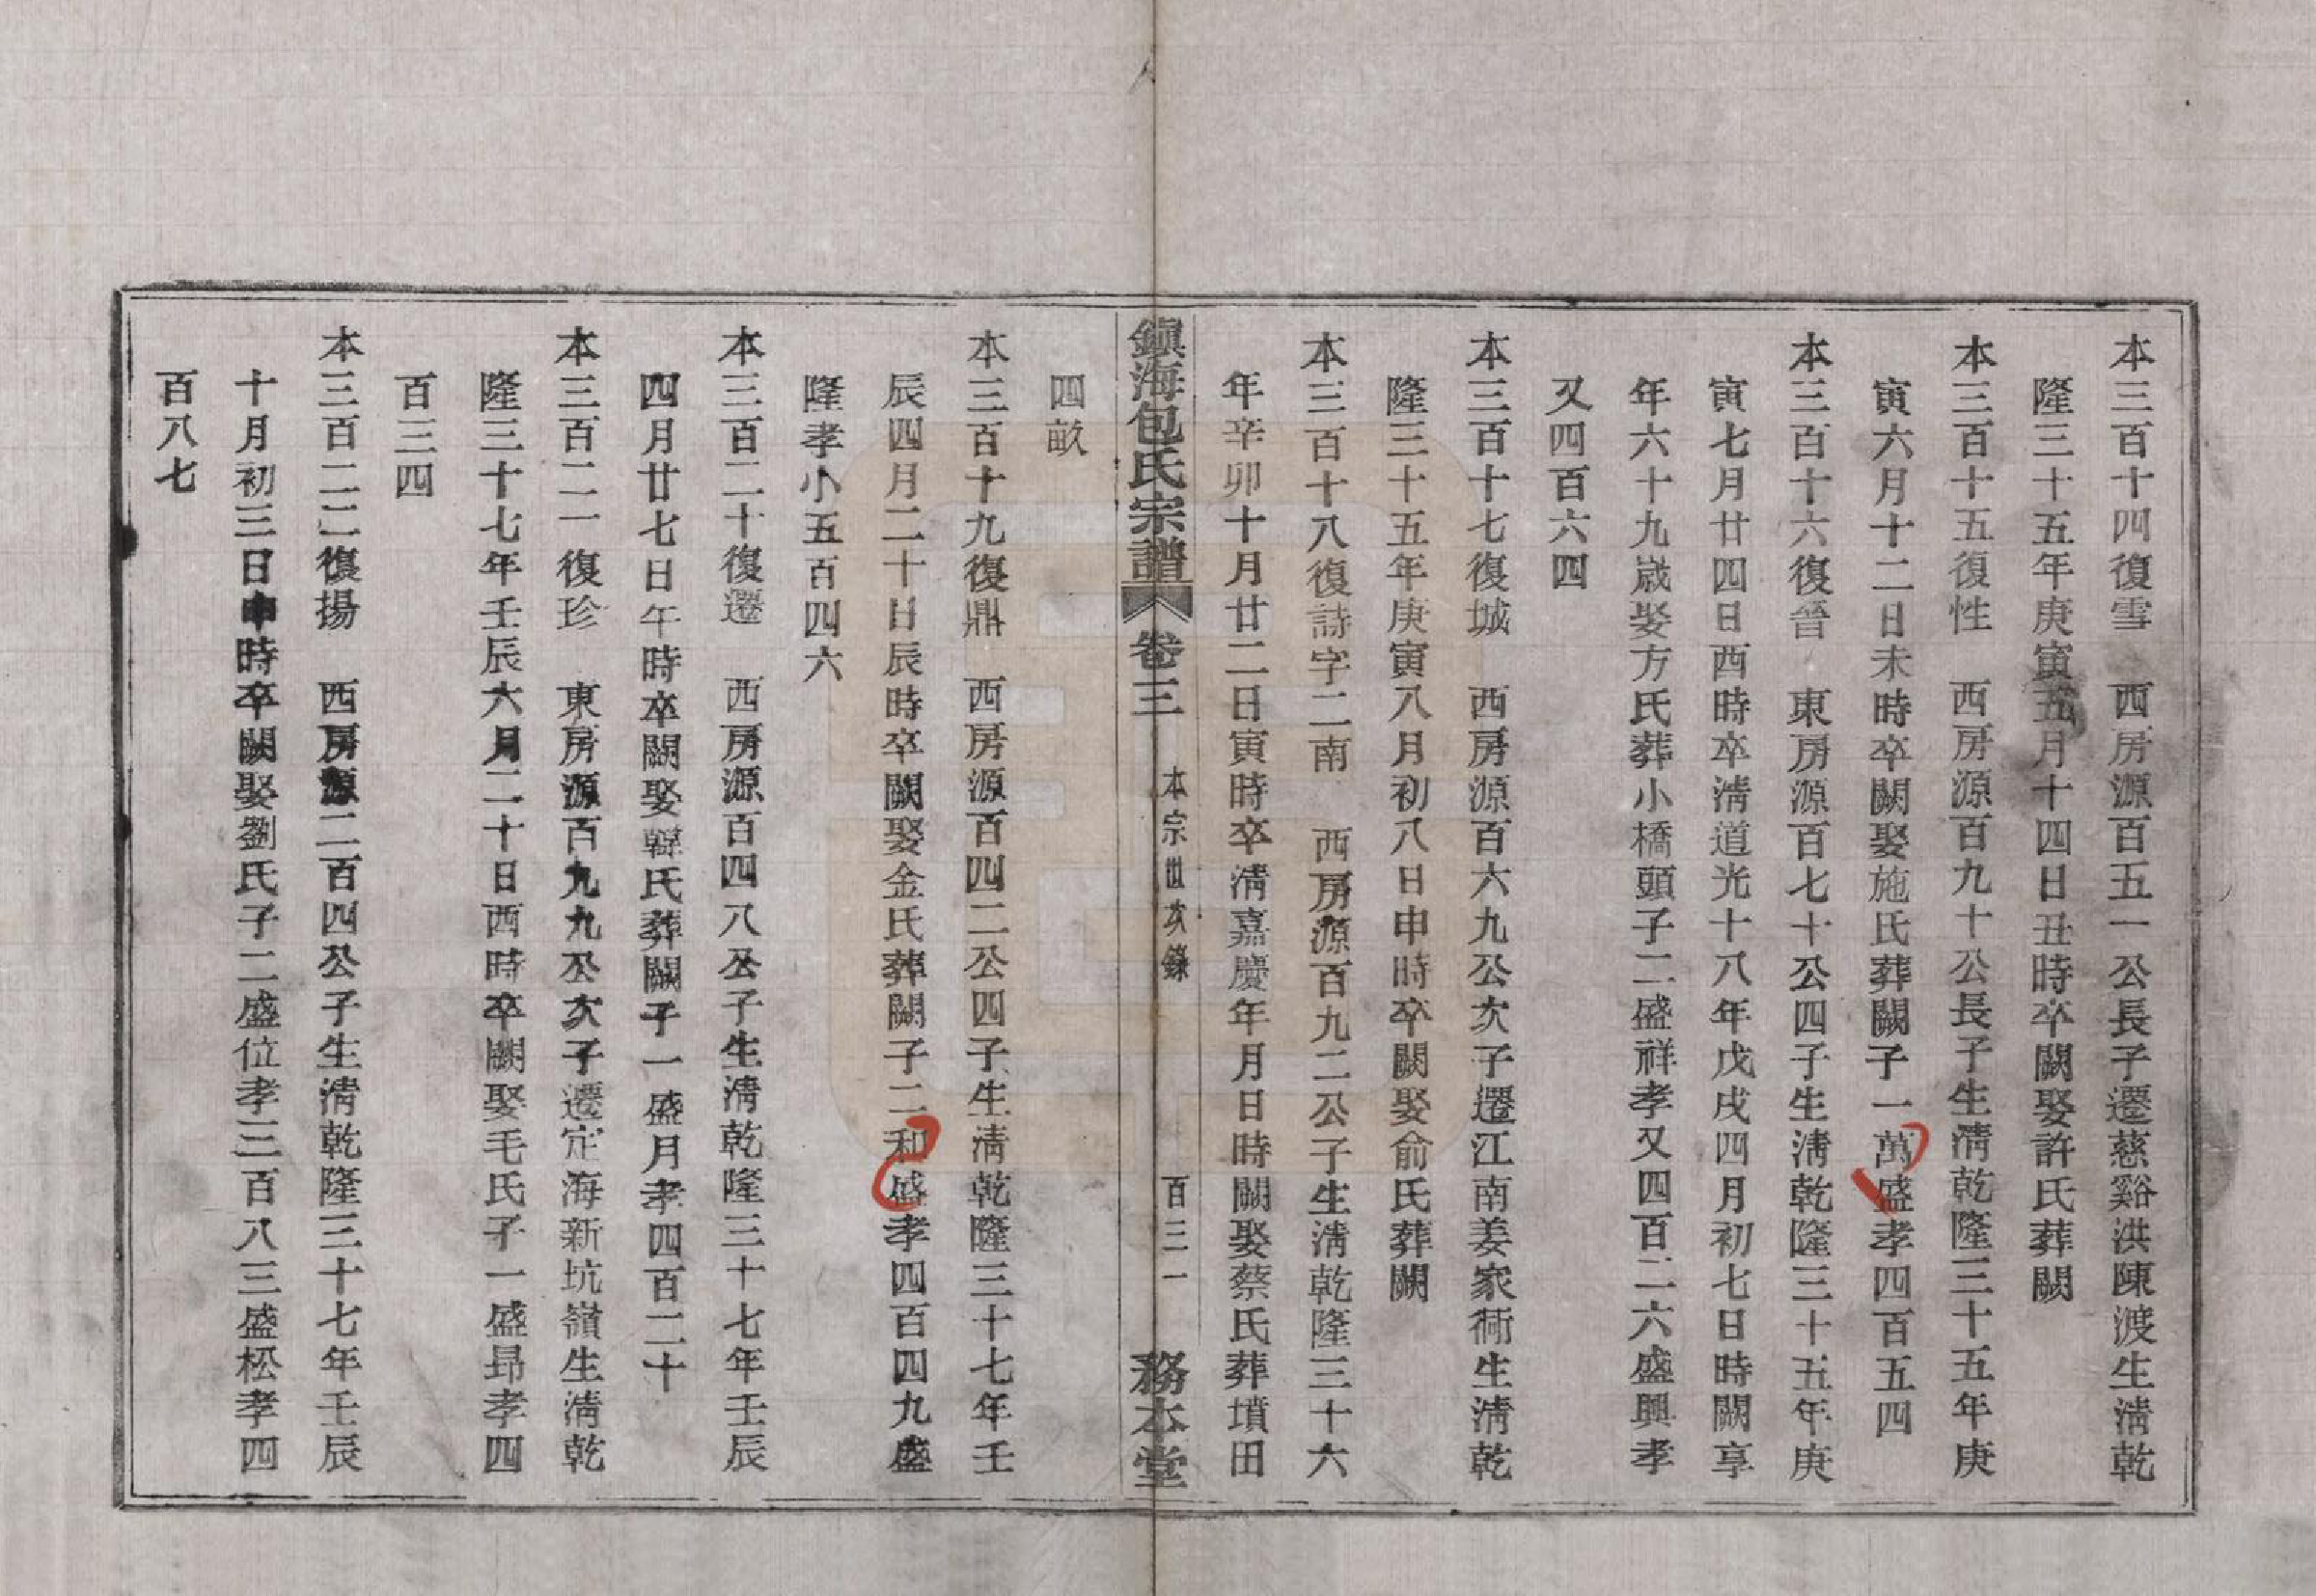 本三百十四復雪　西房源百五一公長子遷慈谿洪陳渡生淸乾
隆三十五年庚寅五月十四日丑時卒闕娶許氏葬闕
本三百十五復性　西房源百九十公長子生淸乾隆三十五年庚
寅六月十二日未時卒闕娶施氏葬闕子一萬盛孝四百五四
本三百十六復晉　東房源百七十公四子生淸乾隆三十五年庚
寅七月廿四日酉時卒淸道光十八年戊戌四月初七日時闕享
年六十九歲娶方氏葬小橋頭子二盛祥孝又四百二六盛興孝
又四百六四
本三百十七復城　西房源百六九公次子遷江南姜家衕生淸乾
隆三十五年庚寅八月初八日申時卒闕娶俞氏葬闕
本三百十八復詩字二南　西房源百九二公子生淸乾隆三十六
年辛卯十月廿二日寅時卒淸嘉慶年月日時闕娶蔡氏葬墳田
鎭海包氏宗譜　卷三　本宗世次錄　百三一　務本堂
四畝
本三百十九復鼎　西房源百四二公四子生淸乾隆三十七年壬
辰四月二十日辰時卒闕娶金氏葬闕子二和盛孝四百四九盛
隆孝小五百四六
本三百二十復遷　西房源百四八公子生淸乾隆三十七年壬辰
四月廿七日午時卒闕娶韓氏葬闕子一盛月孝四百二十
本三百二一復珍　東房源百九九公次子遷定海新坑嶺生淸乾
隆三十七年壬辰六月二十日酉時卒闕娶毛氏子一盛昻孝四
百三四
本三百二二復揚　西房源二百四公子生淸乾隆三十七年壬辰
十月初三日申時卒闕娶劉氏子二盛位孝三百八三盛松孝四
百八七